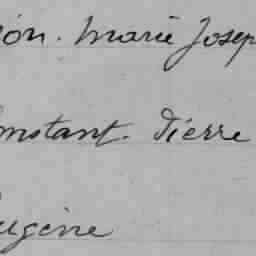 ion. Marie Josep
onstant. Pierre
ugène